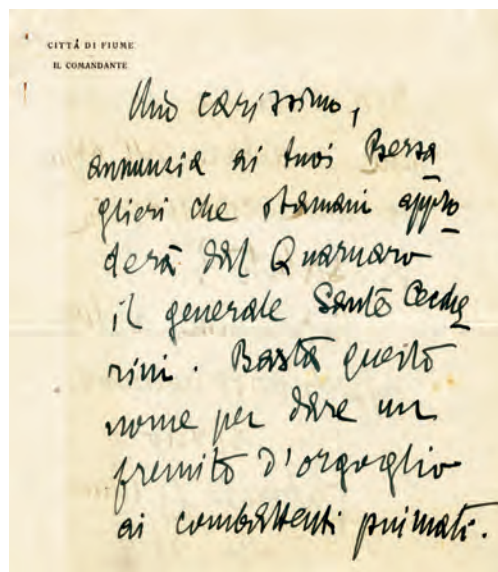 CITTÀ DI FIUME
IL COMANDANTE
Mio carissimo,
annunzia ai tuoi Bersa
glieri che stamani appro
derà dal Quarnaro
il generale Santo Cecche
rini. Basta questo
nome per dare un
fremito d'orgoglio
ai combattenti